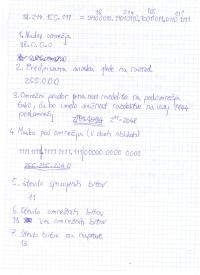 38.214.155.111 = 00100110.11010110.10011011.01101111
1. Naslov omrežja
38.0.0.0
2. Predpisana maska glede na razred
255.0.0.0
3. Omrežni prostor preuredi razdeliti na podomrežja
tako, da bo imelo možnost razdelitve na vsaj
podomrežij 2^11 = 2048
4. Maska pod omrežja (v dveh oblikah)
11111111.11111111.11100000.00000000
255.255.224.0
5. Število sposojenih bitov
11
6. Število omrežnih bitov
7. Število bitov za naprave
13